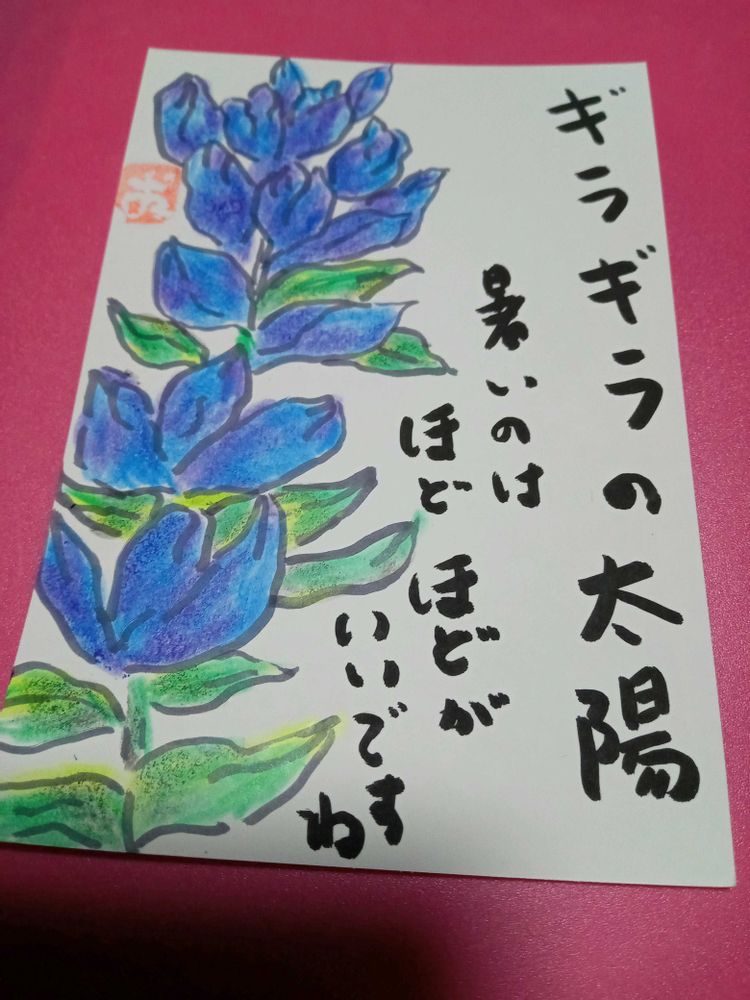 ギラギラの太陽
暑いのは
ほど ほどが
いいです
ね